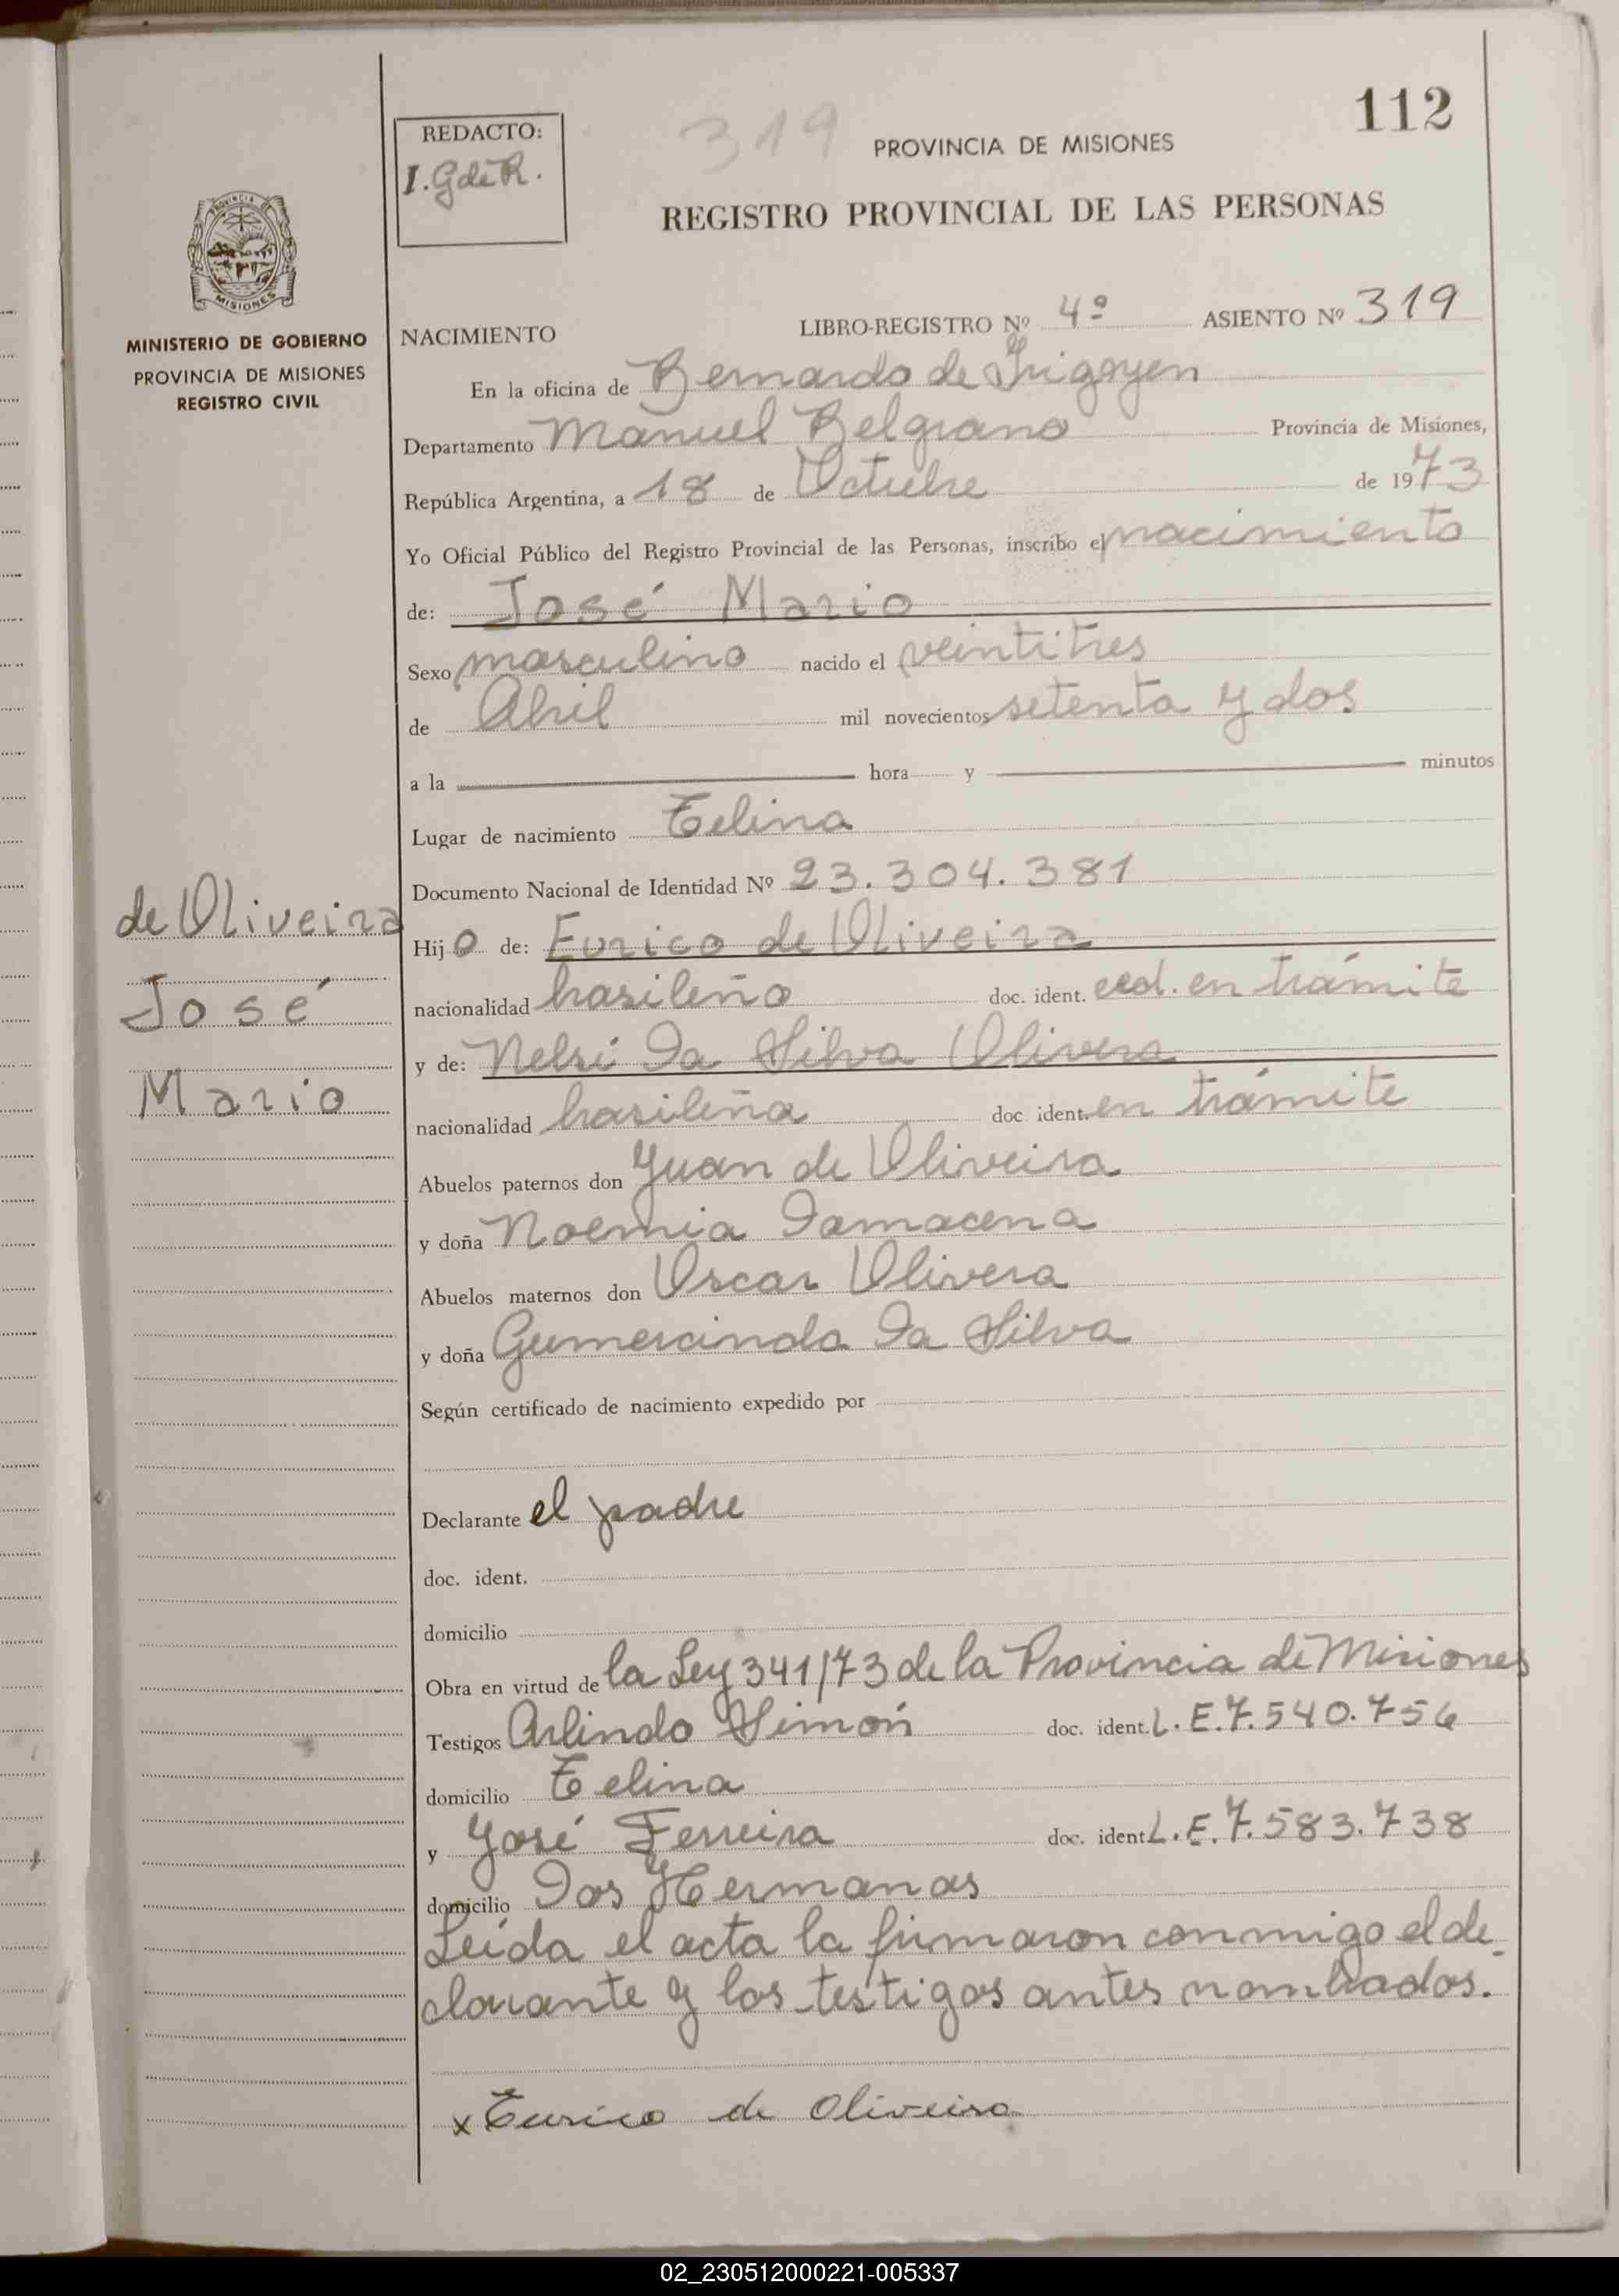 112
REDACTO:
I. G de R.
319
PROVINCIA DE MISIONES
REGISTRO PROVINCIAL DE LAS PERSONAS
PROVINCIA DE
MISIONES
MINISTERIO DE GOBIERNO
PROVINCIA DE MISIONES
REGISTRO CIVIL
NACIMIENTO LIBRO-REGISTRO Nº 4º ASIENTO Nº 319
En la oficina de Bernardo de Irigoyen
Departamento Manuel Belgrano Provincia de Misiones,
República Argentina, a 18 de Octubre de 1973
Yo Oficial Público del Registro Provincial de las Personas, inscribo el nacimiento
de: José Mario
Sexo masculino nacido el veintitres
de Abril mil novecientos setenta y dos
a la hora y minutos
Lugar de nacimiento Celina
Documento Nacional de Identidad Nº 23.304.381
de Oliveira
José
Mario
Hijo de: Eurico de Oliveira
nacionalidad brasileño doc. ident. ced. en trámite
y de: Nelsi Da Silva Olivera
nacionalidad brasileña doc ident. en trámite
Abuelos paternos don Juan de Oliveira
y doña Noemia Damacena
Abuelos maternos don Oscar Olivera
y doña Gumercinda Da Silva
Según certificado de nacimiento expedido por
Declarante el padre
doc. ident.
domicilio
Obra en virtud de la Ley 341/73 de la Provincia de Misiones
Testigos Arlindo Simón doc. ident. L.E.7.540.756
domicilio Celina
y José Ferreira doc. ident. L.E.7.583.738
domicilio Dos Hermanas
Leída el acta la firmaron conmigo el de-
clarante y los testigos antes nombrados.
x Eurico de Oliveira
02_230512000221-005337